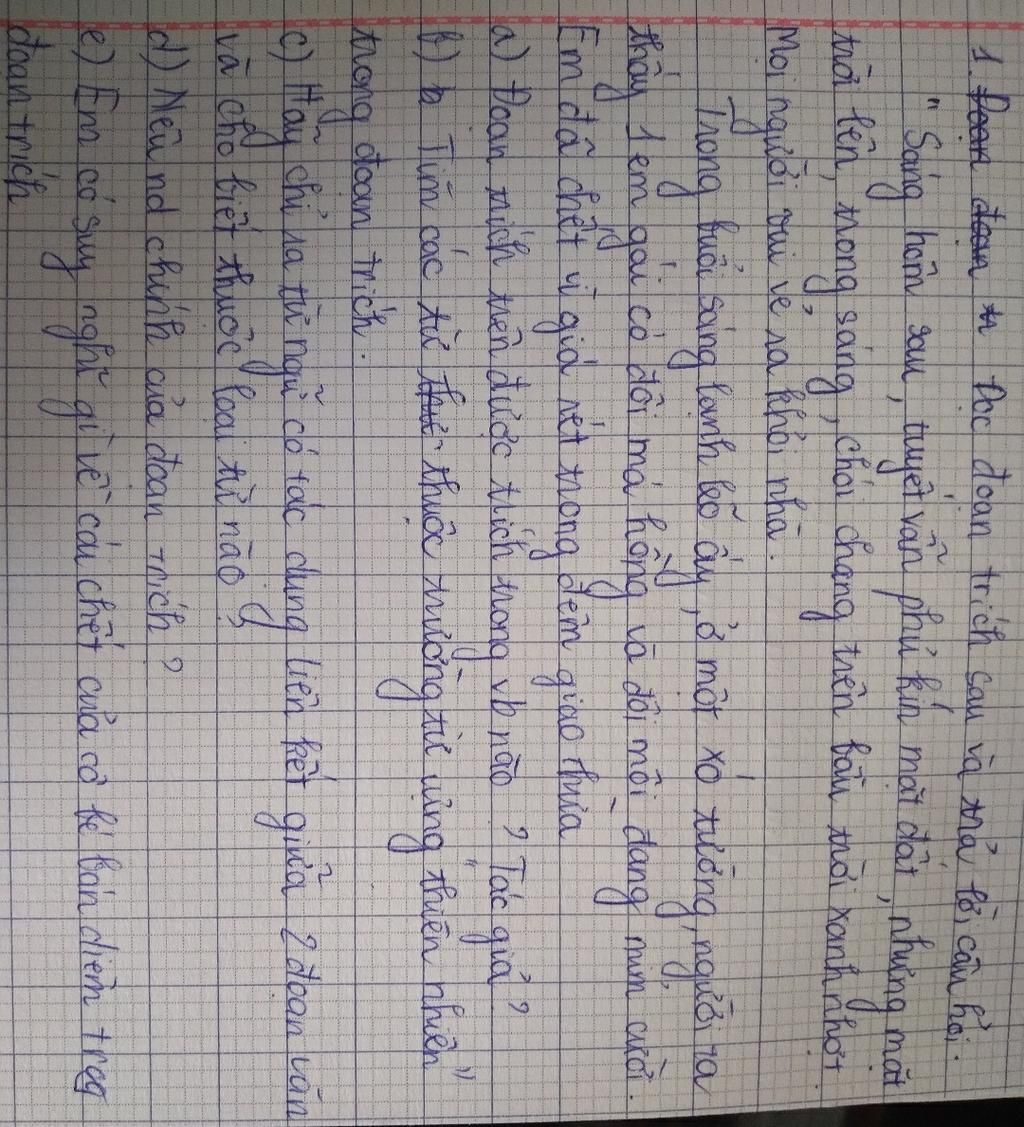 1. Đoạn đoạn tr Đọc đoạn trích sau và trả lời câu hỏi.
" Sáng hôm sau, tuyết vẫn phủ kín mặt đất, nhưng mặt
trời lên, trong sáng, chói chang trên bầu trời xanh nhợt.
Mọi người vui vẻ ra khỏi nhà.
Trong buổi sáng lạnh lẽo ấy, ở một xó tường, người ta
thấy 1 em gái có đôi má hồng và đôi môi đang mỉm cười.
Em đã chết vì giá rét trong đêm giao thừa
a) Đoạn trích trên được trích trong vb nào ? Tác giả ?
b) b Tìm các từ thuộc trường từ vựng "thiên nhiên"
trong đoạn trích.
c) Hãy chỉ ra từ ngữ có tác dụng liên kết giữa 2 đoạn văn
và cho biết thuộc loại từ nào ?
d) Nêu nd chính của đoạn trích ?
e) Em có suy nghĩ gì về cái chết của cô bé bán diêm trog
đoạn trích